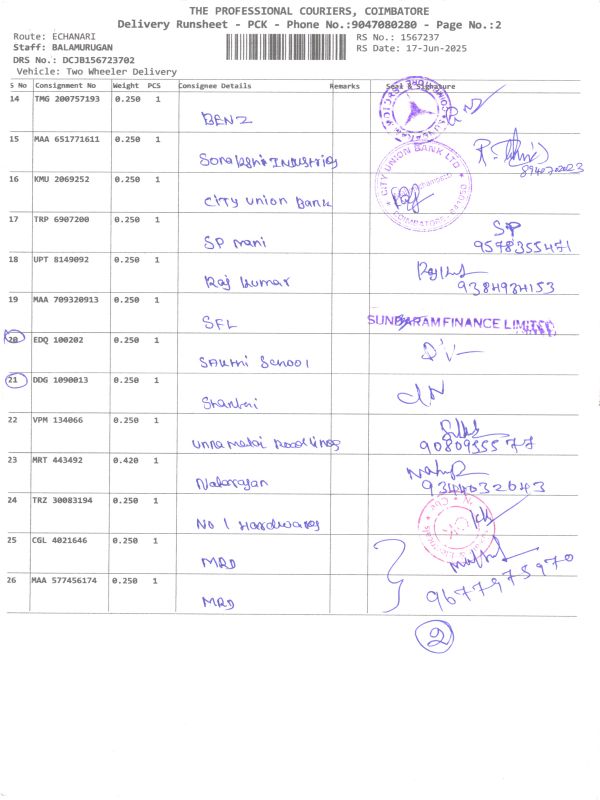 THE PROFESSIONAL COURIERS, COIMBATORE
Delivery Runsheet - PCK - Phone No.:9047080280 - Page No.:2
Route: ECHANARI RS No.: 1567237
Staff: BALAMURUGAN RS Date: 17-Jun-2025
DRS No.: DCJB156723702
Vehicle: Two Wheeler Delivery
S No Consignment No Weight PCS Consignee Details Remarks Seal & Signature
14 TMG 200757193 0.250 1
BENZ
15 MAA 651771611 0.250 1
Industries
16 KMU 2069252 0.250 1
CITY UNION BANK LTD
COIMBATORE
City Union Bank
17 TRP 6907200 0.250 1
SP
SP mani 9578355471
18 UPT 8149092 0.250 1
Raj Kumar 9384934153
19 MAA 709320913 0.250 1
SFL SUNDARAM FINANCE LIMITED
20 EDQ 100202 0.250 1
Sakthi School
21 DDG 1090013 0.250 1
Shanthi
22 VPM 134066 0.250 1
Roadlines 9080955577
23 MRT 443492 0.420 1
Natarajan 9344032643
24 TRZ 30083194 0.250 1
No 1 Hardwares
25 CGL 4021646 0.250 1
MRD
26 MAA 577456174 0.250 1
MRD 9677975970
2